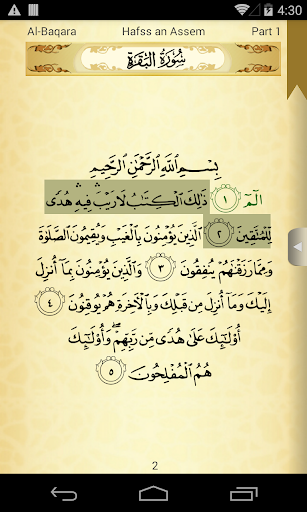 4:30
Al-Baqara Hafss an Assem Part 1
سُورَةُ الْبَقَرَةِ
بِسْمِ اللَّهِ الرَّحْمَٰنِ الرَّحِيمِ
الٓمٓ ١ ذَٰلِكَ الْكِتَابُ لَا رَيْبَ ۛ فِيهِ ۛ هُدًى
لِّلْمُتَّقِينَ ٢ الَّذِينَ يُؤْمِنُونَ بِالْغَيْبِ وَيُقِيمُونَ الصَّلَاةَ
وَمِمَّا رَزَقْنَاهُمْ يُنفِقُونَ ٣ وَالَّذِينَ يُؤْمِنُونَ بِمَا أُنزِلَ
إِلَيْكَ وَمَا أُنزِلَ مِن قَبْلِكَ وَبِالْآخِرَةِ هُمْ يُوقِنُونَ ٤
أُولَٰئِكَ عَلَىٰ هُدًى مِّن رَّبِّهِمْ ۖ وَأُولَٰئِكَ
هُمُ الْمُفْلِحُونَ ٥
2